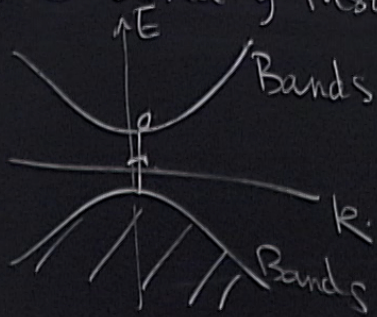 E
Bands
k.
Bands